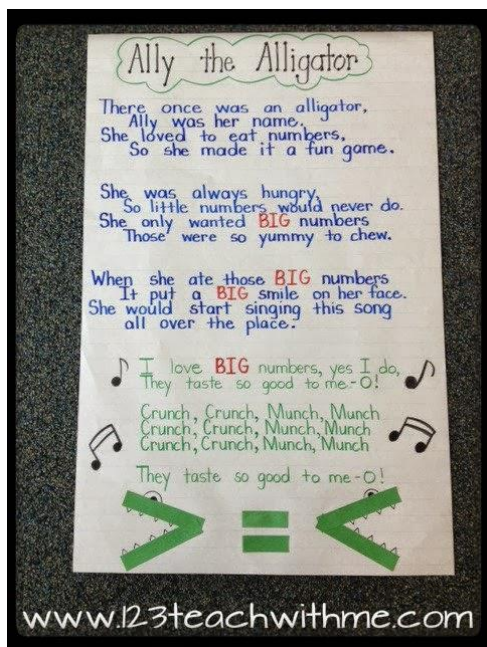 Ally the Alligator
There once was an alligator,
Ally was her name.
She loved to eat numbers,
So she made it a fun game.
She was always hungry,
So little numbers would never do.
She only wanted BIG numbers
Those were so yummy to chew.
When she ate those BIG numbers
It put a BIG smile on her face.
She would start singing this song
all over the place.
I love BIG numbers, yes I do,
They taste so good to me-O!
Crunch, Crunch, Munch, Munch
Crunch, Crunch, Munch, Munch
Crunch, Crunch, Munch, Munch
They taste so good to me-O!
> = <
www.123teachwithme.com